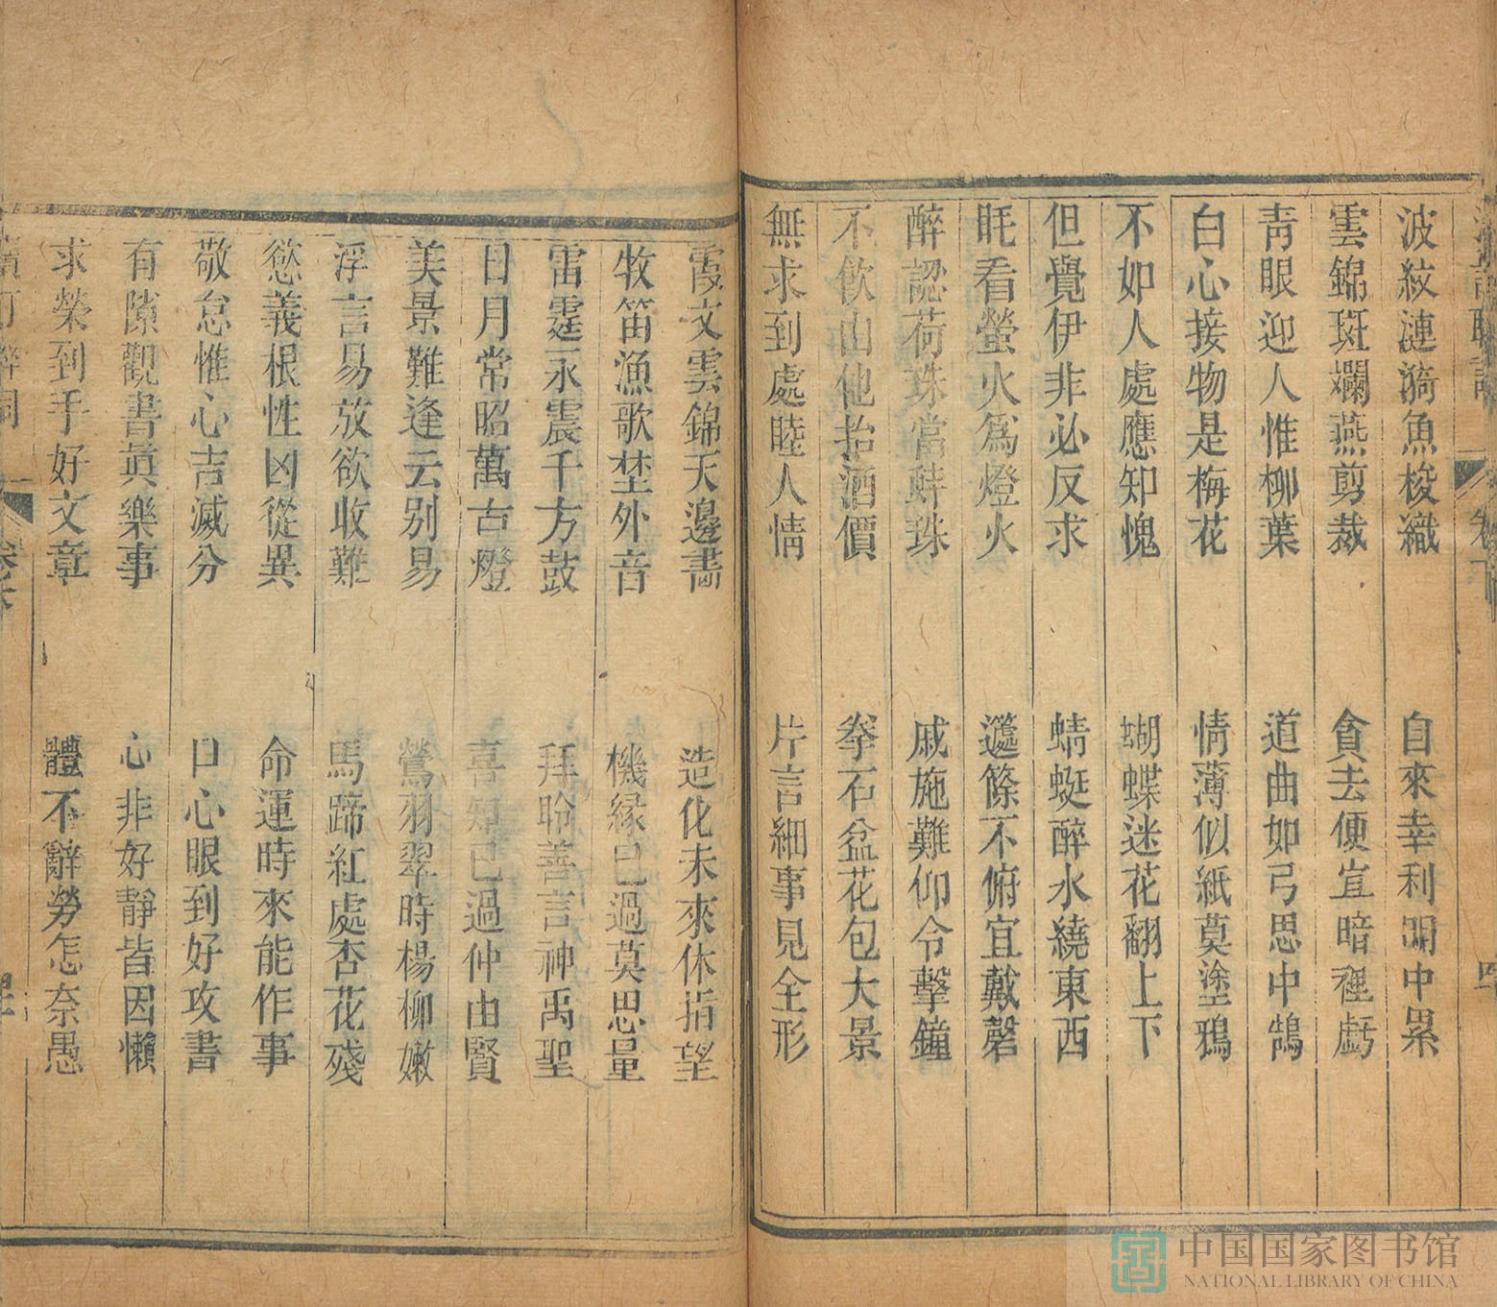 波紋漣漪魚梭織　自來幸利明中累
雲錦斑斕燕剪裁　貪去便宜暗裡虧
靑眼迎人惟柳葉　道曲如弓思中鵠
白心接物是梅花　情薄似紙莫塗鴉
不如人處應知愧　蝴蝶迷花翻上下
但覺伊非必反求　蜻蜓醉水繞東西
眊看螢火爲燈火　籧篨不俯宜戴磬
醉認荷珠當蚌珠　戚施難仰令擊鐘
不飲由他抬酒價　拳石盆花包大景
無求到處睦人情　片言細事見全形
霞文雲錦天邊畵　造化未來休指望
牧笛漁歌埜外音　機緣已過莫思量
雷霆永震千方鼓　拜聆善言神禹聖
日月常昭萬古燈　喜知已過仲由賢
美景難逢云別易　鶯羽翠時楊柳嫩
浮言易放欲收難　馬蹄紅處杏花殘
慾義根性凶從異　命運時來能作事
敬怠惟心吉滅分　口心眼到好攻書
有隙觀書眞樂事　心非好靜皆因懶
求榮到手好文章　體不辭勞怎奈愚
中国国家图书馆
NATIONAL LIBRARY OF CHINA